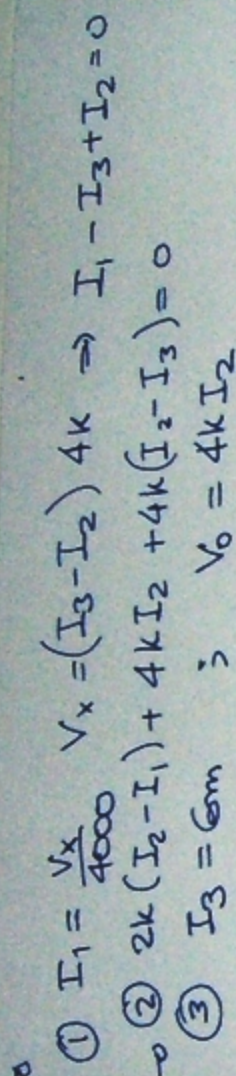 ① I₁ = Vx/4000 Vx = (I₃-I₂) 4k ⇒ I₁ - I₃ + I₂ = 0
② 2k (I₂-I₁) + 4k I₂ + 4k (I₂-I₃) = 0
③ I₃ = 6m ; V₀ = 4k I₂